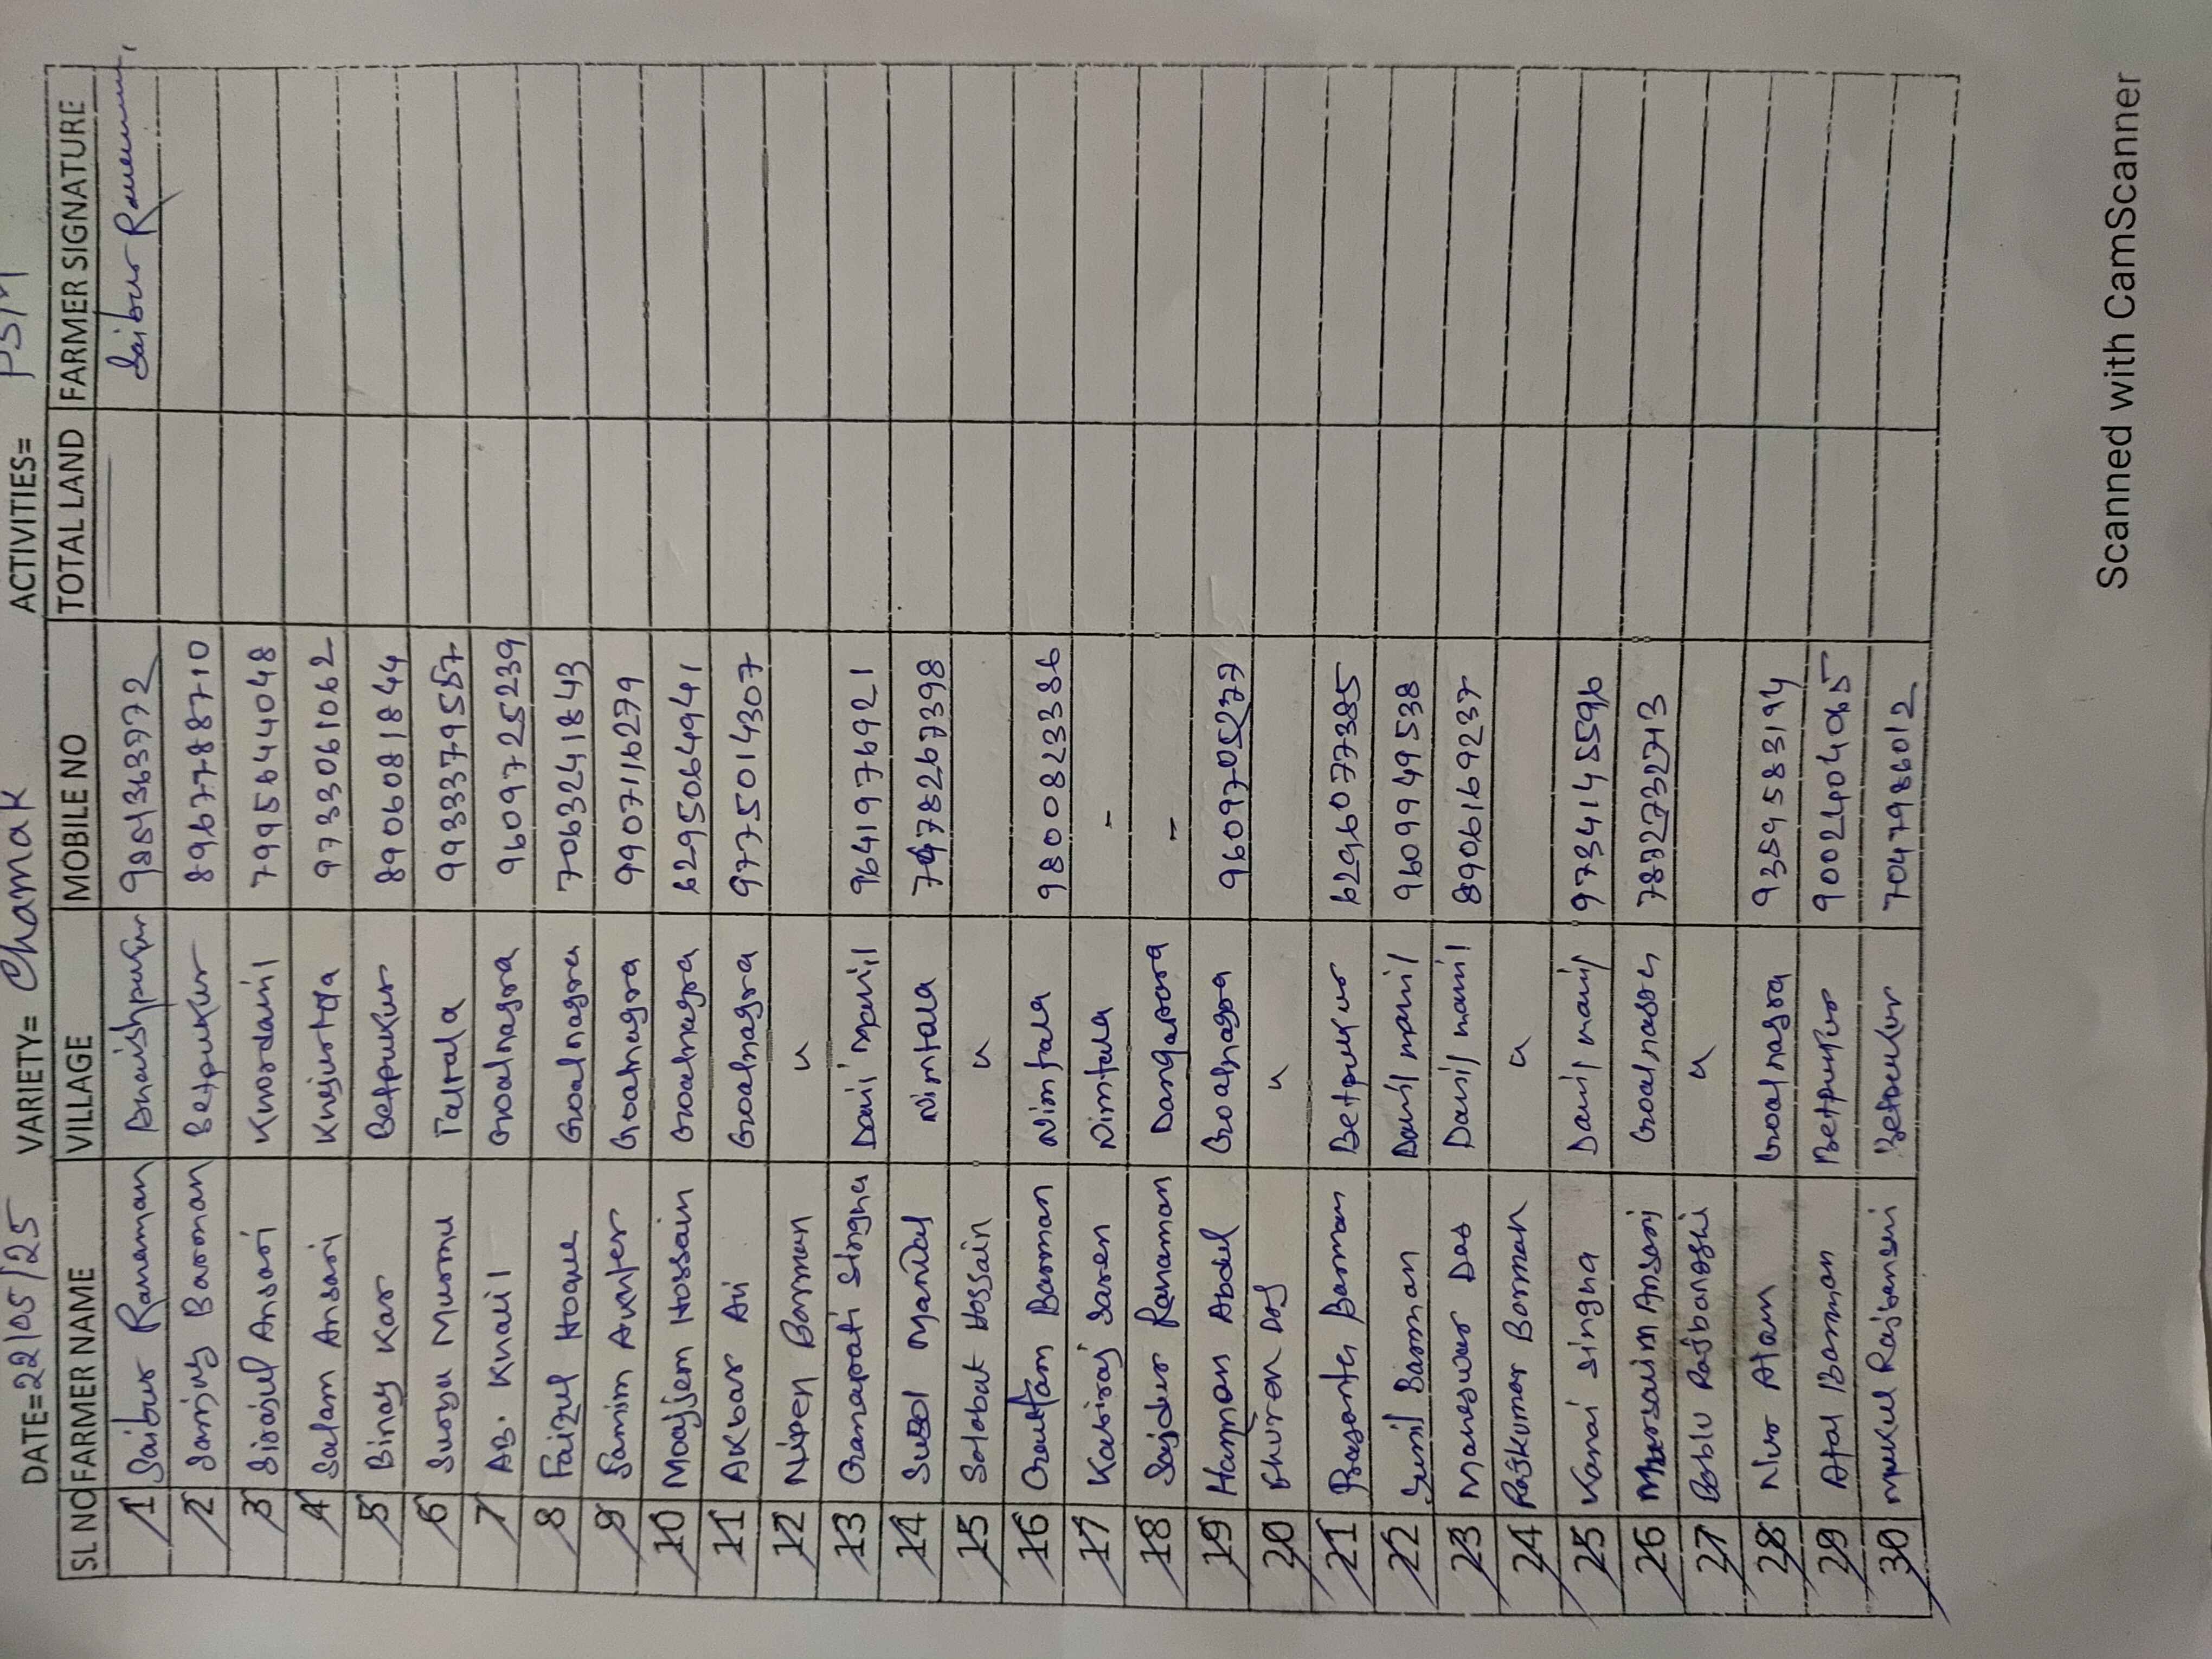 DATE=22/05/25 VARIETY= Chamak ACTIVITIES= PSM
SL NO FARMER NAME VILLAGE MOBILE NO TOTAL LAND FARMER SIGNATURE
1 Saibur Rahaman 9851363972 Saibur Rahaman
2 Sanjay Barman Betpukur 8967788710
3 Sirajul Ansari Kwordanil 7995644048
4 Salam Ansari Khejurtta 9733061062
5 Binay Kar Betpukur 8906081844
6 Surya Murmu Taltala 9933379557
7 AB. Khalil Groalnagra 9609725239
8 Faizul Hoque Groalnagra 7063241843
9 Samim Aukter Groalnagra 9907116279
10 Moajjem Hossain Groalnagra 6295064941
11 AKbar Ali Groalnagra 9775014307
12 Nipen Barman "
13 Ganapati Singha Danil manil 9641976921
14 Subol Mandal Nimtala 7478267398
15 Solobat Hossain "
16 Goutam Barman Nimtala 9800823386
17 Kabiraj Saren Nimtala -
18 Sajdur Rahaman Dangapara --
19 Hannan Abdul Groalnagra 9609705277
20 Bhuron Das "
21 Prasanta Barman Betpukur 6296077385
22 Sunil Barman Danil manil 9609949538
23 Maheswar Das Danil manil 8906169237
24 Rajkumar Barman "
25 Kanai Singha Danil manil 9734145596
26 Mursalim Ansari Groalnagra 7872732713
27 Bablu Rajbangshi "
28 Nur Alam Groalnagra 9359583194
29 Atal Barman Betpukur 9002404065
30 Mukul Rajbanshi Betpukur 7047986012
Scanned with CamScanner